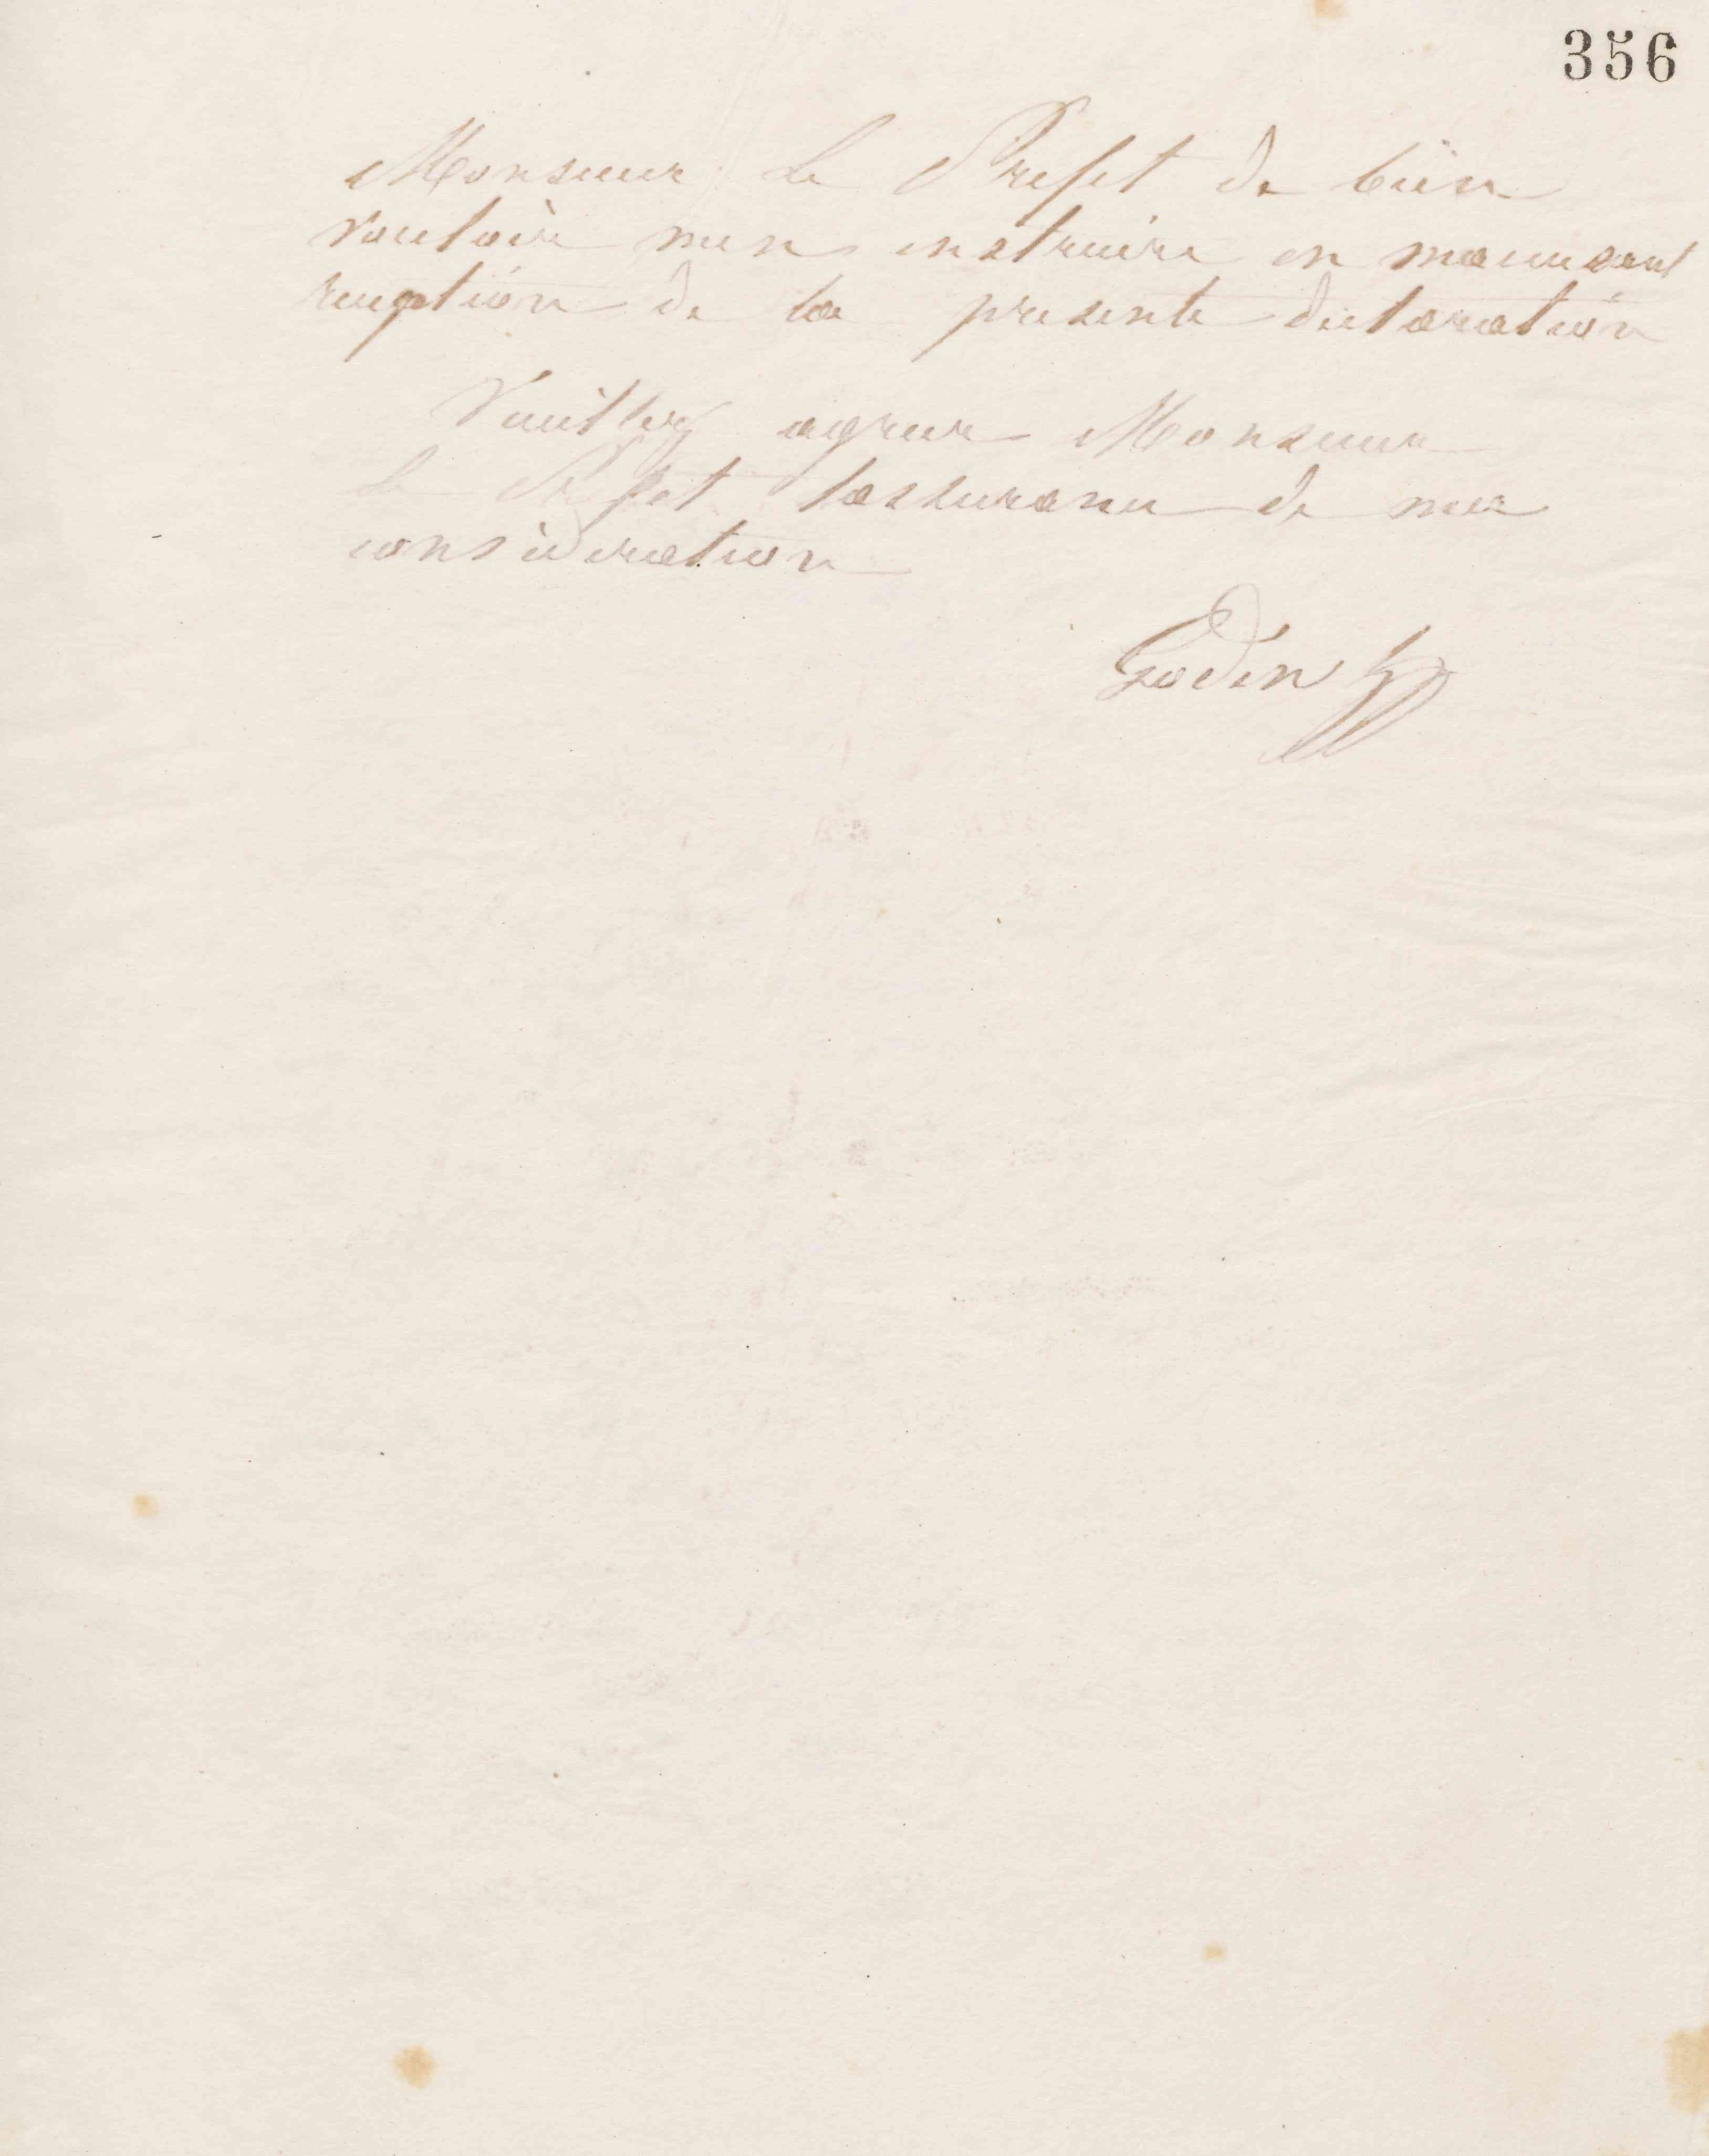 356
Monsieur Le Prefet de bien
vouloir men instruire en maccusant
reception de la presente declaration
Veuillez agreer Monsieur
le Prefet lassurance de ma
consideration
Godin